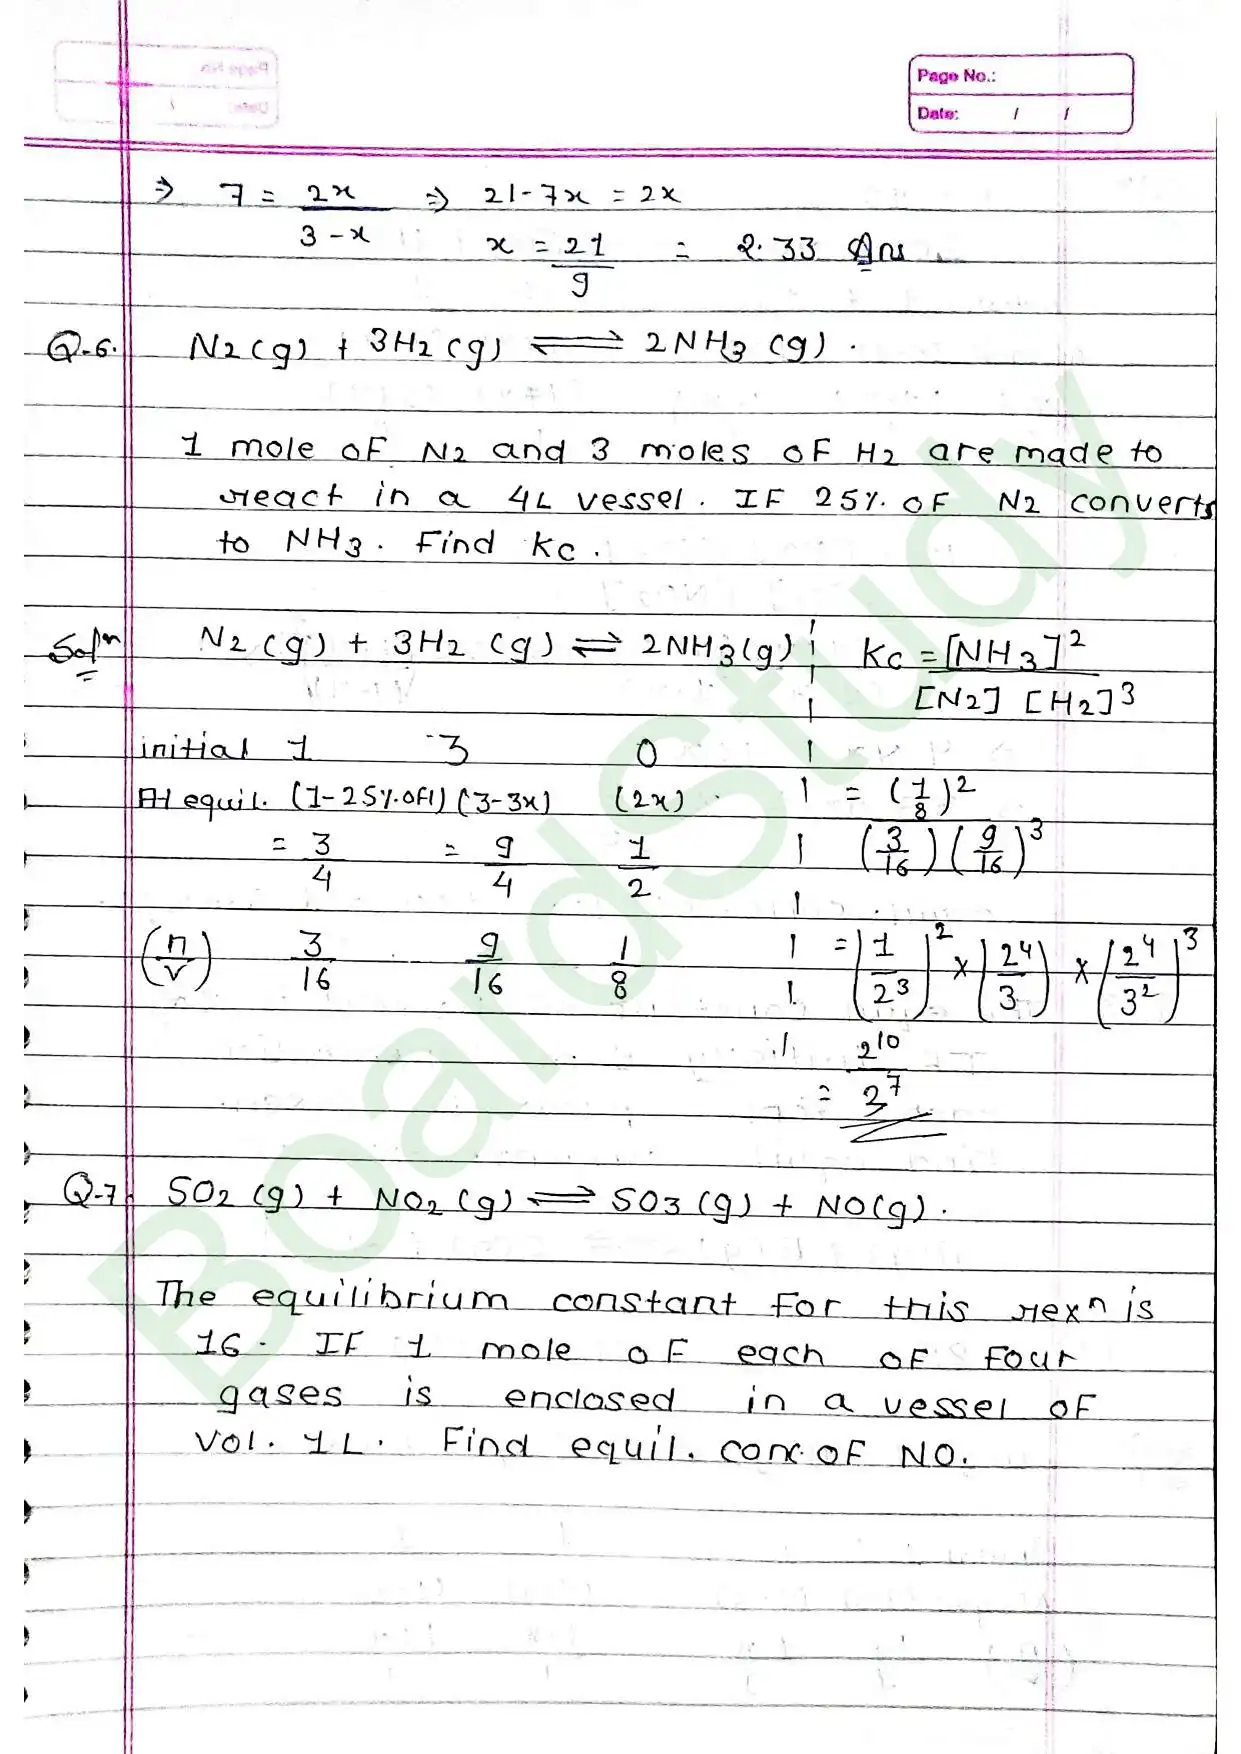 Page No.:
Date: / /
⇒ 7 = 2x/(3-x) ⇒ 21-7x = 2x
x = 21/9 = 2.33 Ans
Q-6. N2(g) + 3H2(g) ⇌ 2NH3(g).
1 mole of N2 and 3 moles of H2 are made to
react in a 4L vessel. If 25% of N2 converts
to NH3. Find Kc.
Solⁿ N2(g) + 3H2(g) ⇌ 2NH3(g) Kc = [NH3]²/[N2][H2]³
initial 1 3 0
At equil. (1-25% of 1) (3-3x) (2x) = (1/8)²/(3/16)(9/16)³
= 3/4 = 9/4 1/2
(n/v) 3/16 9/16 1/8 = (1/2³)² × (2⁴/3) × (2⁴/3²)³
= 2¹⁰/3⁷
Q-7. SO2(g) + NO2(g) ⇌ SO3(g) + NO(g).
The equilibrium constant for this rexⁿ is
16. If 1 mole of each of four
gases is enclosed in a vessel of
vol. 1L. Find equil. conc. of NO.
BoardStudy